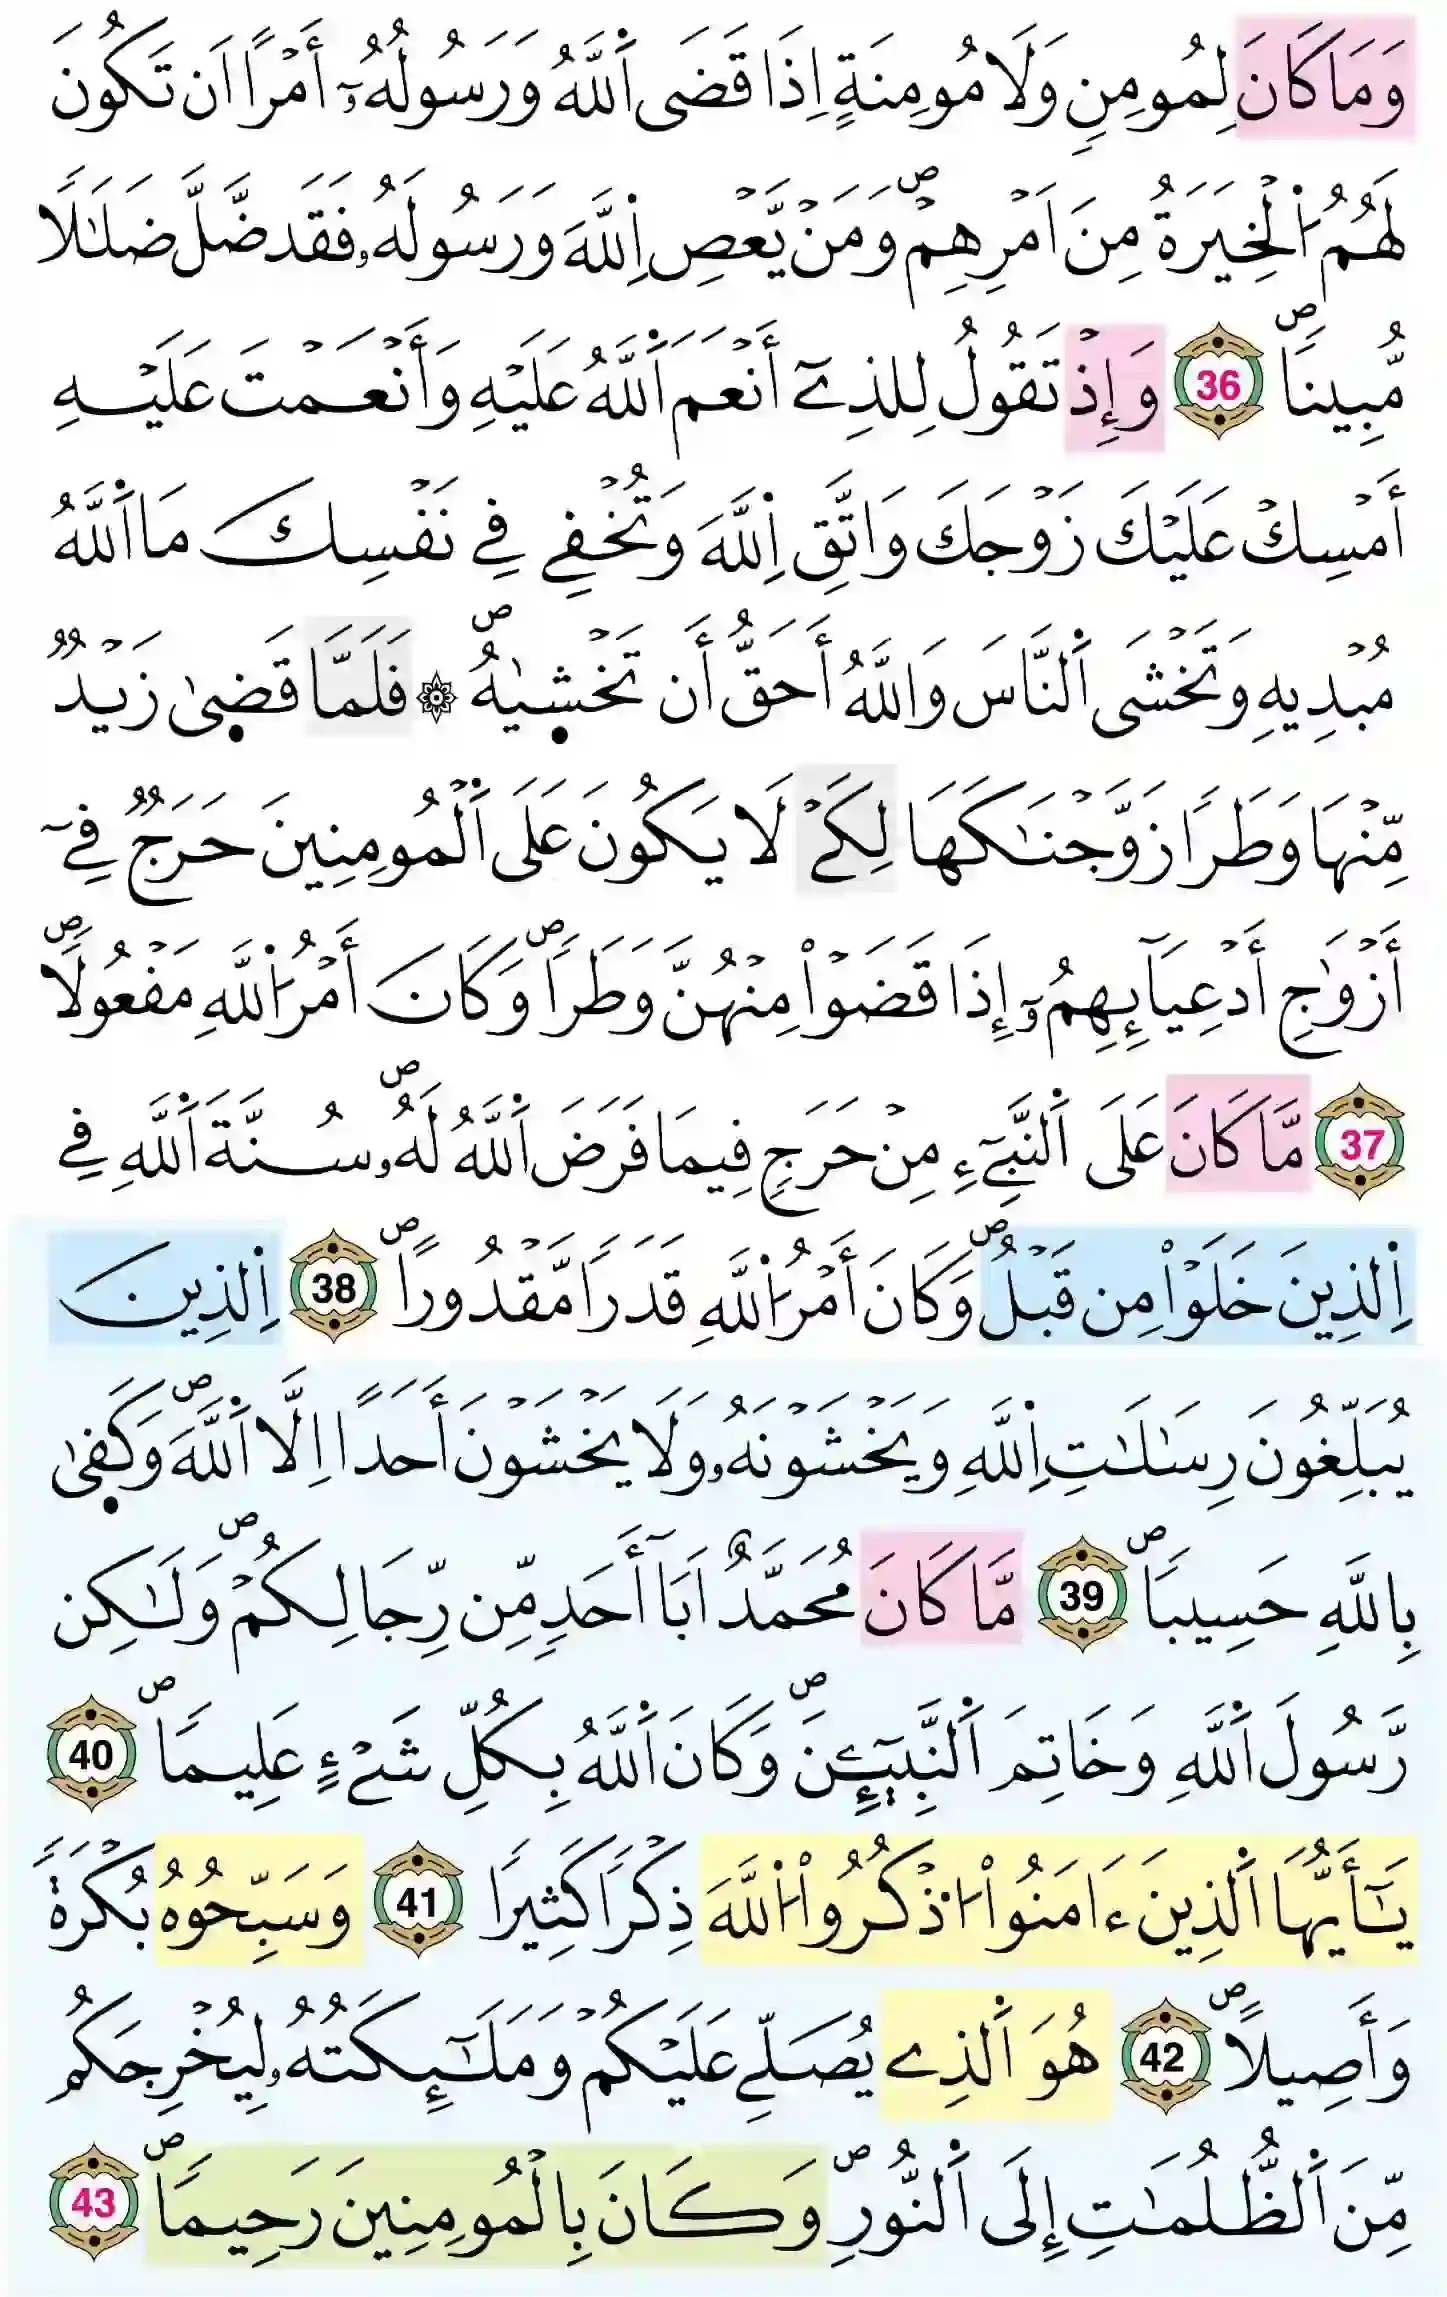 وَمَا كَانَ لِمُومِنٍ وَلَا مُومِنَةٍ اِذَا قَضَى اَ۬للَّهُ وَرَسُولُهُۥٓ أَمْراً اَن تَكُونَ
لَهُمُ اُ۬لْخِيَرَةُ مِنَ اَمْرِهِمْۖ وَمَنْ يَّعْصِ اِ۬للَّهَ وَرَسُولَهُۥ فَقَد ضَّلَّ ضَلَٰلاً
مُّبِيناٗۖ 36 وَإِذْ تَقُولُ لِلذِےٓ أَنْعَمَ اَ۬للَّهُ عَلَيْهِ وَأَنْعَمْتَ عَلَيْهِ
أَمْسِكْ عَلَيْكَ زَوْجَكَ وَاتَّقِ اِ۬للَّهَ وَتُخْفِے فِے نَفْسِكَ مَا اَ۬للَّهُ
مُبْدِيهِ وَتَخْشَى اَ۬لنَّاسَ وَاللَّهُ أَحَقُّ أَن تَخْشٜىٰهُۖ ۞ فَلَمَّا قَضٜىٰ زَيْدٌ
مِّنْهَا وَطَراٗ زَوَّجْنَٰكَهَا لِكَےْ لَا يَكُونَ عَلَى اَ۬لْمُومِنِينَ حَرَجٌ فِےٓ
أَزْوَٰجِ أَدْعِيَآئِهِمُۥٓ إِذَا قَضَوْاْ مِنْهُنَّ وَطَراٗۖ وَكَانَ أَمْرُ اُ۬للَّهِ مَفْعُولاٗۖ
37 مَّا كَانَ عَلَى اَ۬لنَّبِےٓءِ مِنْ حَرَجٍ فِيمَا فَرَضَ اَ۬للَّهُ لَهُۥۖ سُنَّةَ اَ۬للَّهِ فِے
اِ۬لذِينَ خَلَوْاْ مِن قَبْلُۖ وَكَانَ أَمْرُ اُ۬للَّهِ قَدَراٗ مَّقْدُوراًۖ 38 اِ۬لذِينَ
يُبَلِّغُونَ رِسَٰلَٰتِ اِ۬للَّهِ وَيَخْشَوْنَهُۥ وَلَا يَخْشَوْنَ أَحَداً اِلَّا اَ۬للَّهَۖ وَكَفٜىٰ
بِاللَّهِ حَسِيباٗۖ 39 مَّا كَانَ مُحَمَّدٌ اَبَا أَحَدٖ مِّن رِّجَالِكُمْۖ وَلَٰكِن
رَّسُولَ اَ۬للَّهِ وَخَاتِمَ اَ۬لنَّبِيٓـِٕينَۖ وَكَانَ اَ۬للَّهُ بِكُلِّ شَےْءٍ عَلِيماٗۖ 40
يَٰٓأَيُّهَا اَ۬لذِينَ ءَامَنُواْ اُ۟ذْكُرُواْ اُ۬للَّهَ ذِكْراٗ كَثِيراٗ 41 وَسَبِّحُوهُ بُكْرَةٗ
وَأَصِيلاًۖ 42 هُوَ اَ۬لذِے يُصَلِّے عَلَيْكُمْ وَمَلَٰٓئِكَتُهُۥ لِيُخْرِجَكُم
مِّنَ اَ۬لظُّلُمَٰتِ إِلَى اَ۬لنُّورِۖ وَكَانَ بِالْمُومِنِينَ رَحِيماٗۖ 43